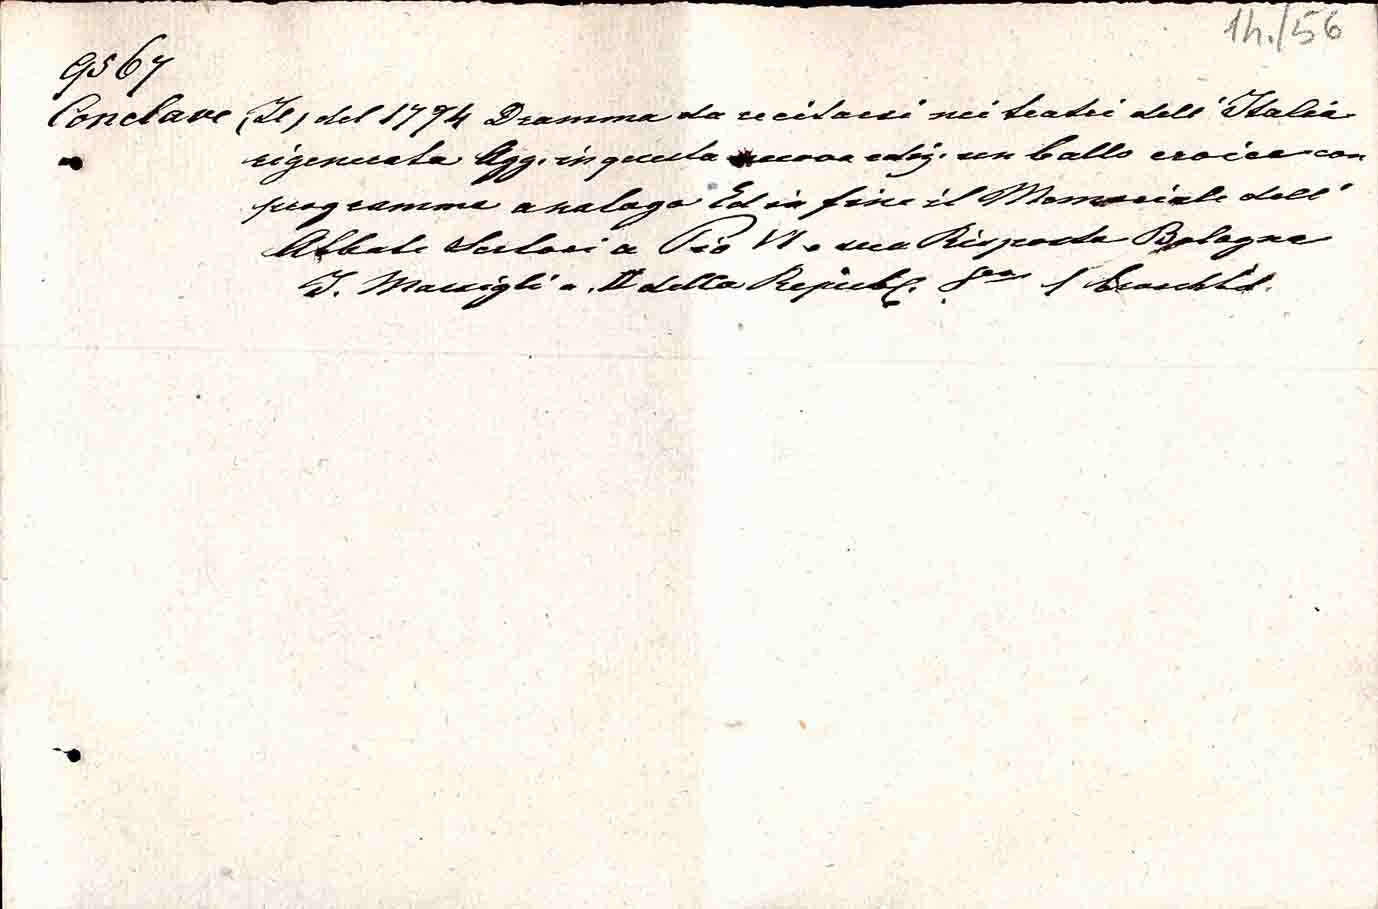 1h./56
9567
Conclave (Il) del 1774 Dramma da recitarsi nei teatri dell' Italia
rigenerata Agg. in questa nuova ediz. un ballo eroico con
programma analogo Ed in fine il Memoriale dell'
Abbate Sertori a Pio VI e sua Risposta Bologna
J. Marsigli a. II della Republ.